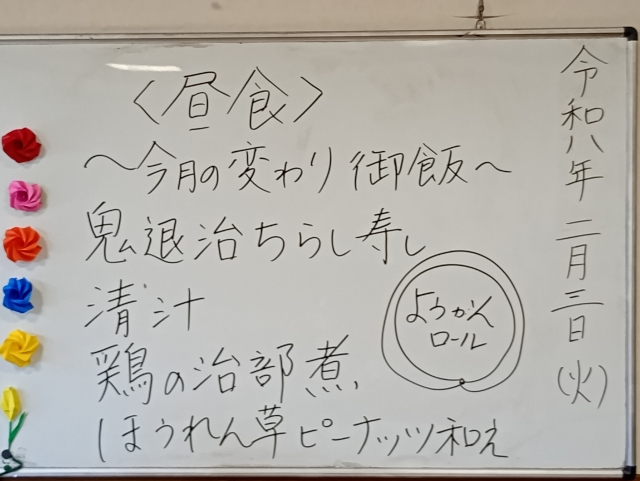 令和八年 二月三日(火)
〈昼食〉
〜今月の変わり御飯〜
鬼退治ちらし寿し
清汁
鶏の治部煮
ほうれん草ピーナッツ和え
ようかん
ロール